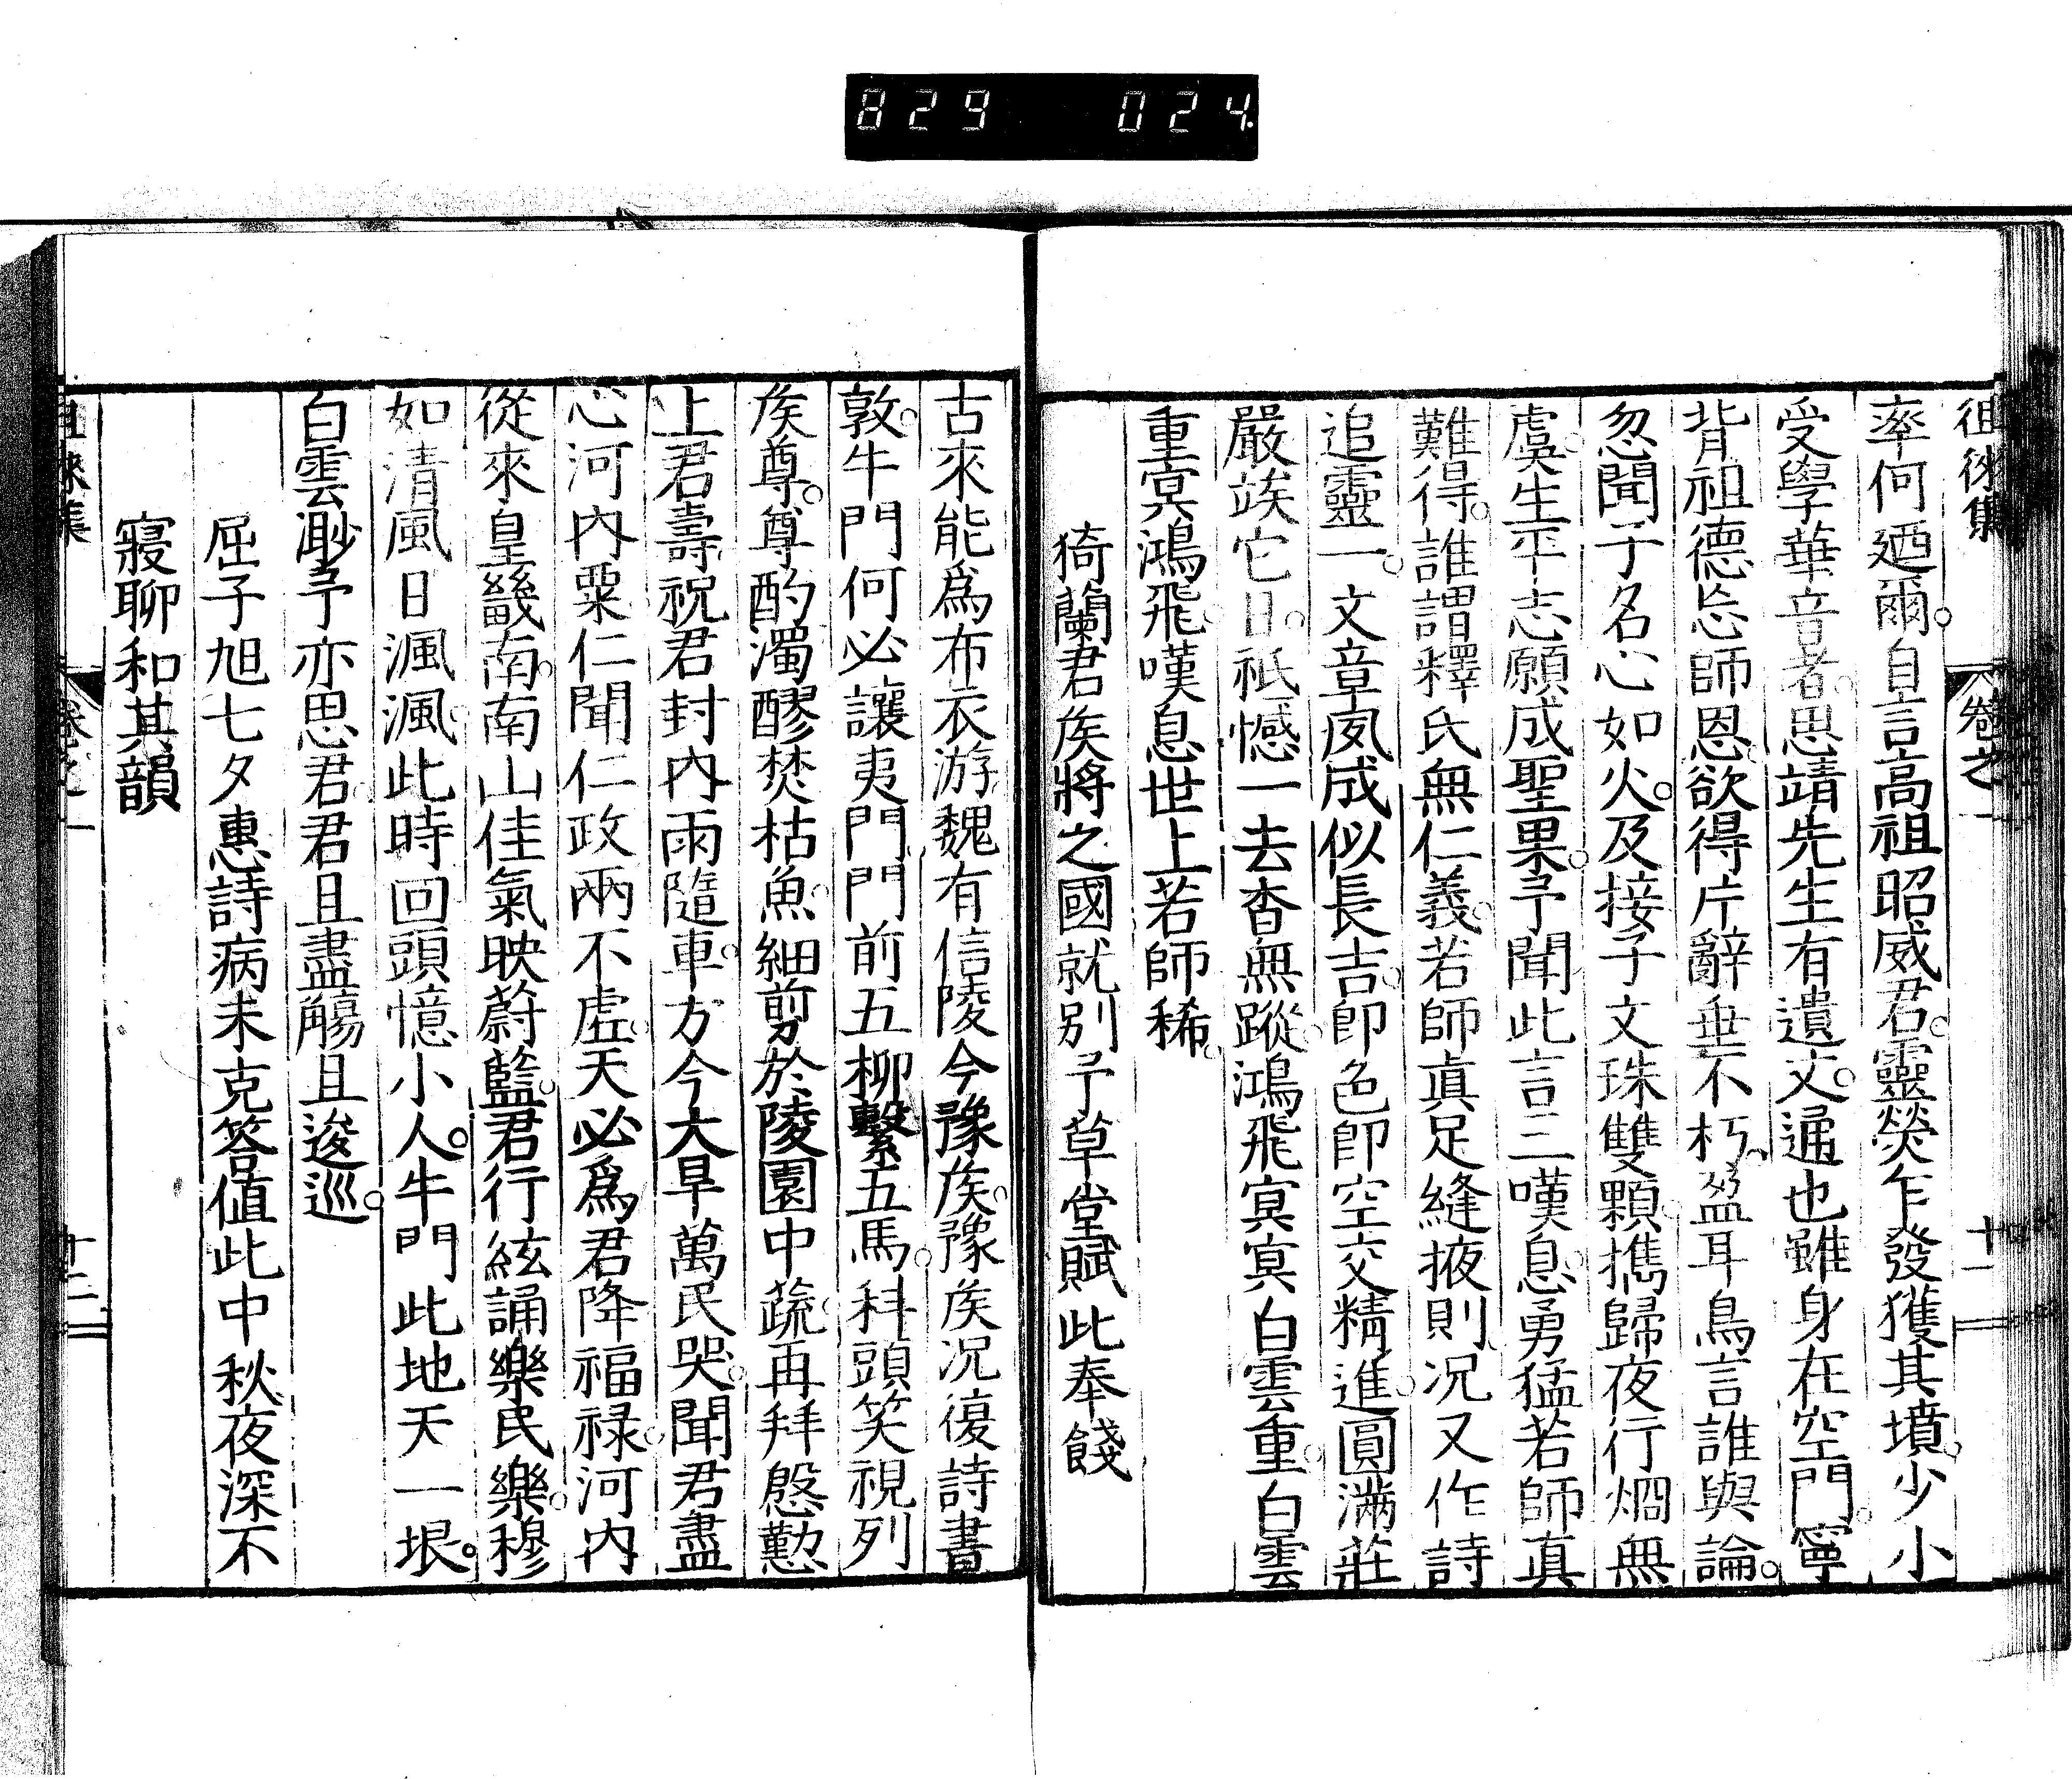 829 024
徂徠集 卷之一 十一
率何廼爾自言高祖昭威君靈熒乍發獲其墳少小
受學華音者思靖先生有遺文遥也雖身在空門寧
背祖德忘師恩欲得片辭垂不朽盈耳鳥言誰與論
忽聞予名心如火及接子文珠雙顆攜歸夜行烱無
虞生平志願成聖果予聞此言三嘆息勇猛若師真
難得誰謂釋氏無仁義若師真足縫掖則況又作詩
追靈一文章夙成似長吉卽色卽空交精進圓滿莊
嚴竢它日祇憾一去杳無蹤鴻飛冥冥白雲重白雲
重冥鴻飛嘆息世上若師稀
猗蘭君矦將之國就別予草堂賦此奉餞
古來能爲布衣游魏有信陵今豫矦豫矦況復詩書
敦牛門何必讓夷門門前五柳繫五馬科頭笑視列
矦尊尊酌濁醪焚枯魚細剪於陵園中蔬再拜慇懃
上君壽祝君封內雨隨車方今大旱萬民哭聞君盡
心河內粟仁聞仁政兩不虛天必爲君降福祿河內
從來皇畿南南山佳氣映蔚藍君行絃誦樂民樂穆
如清風日渢渢此時回頭憶小人牛門此地天一垠
白雲渺予亦思君君且盡觴且逡巡
屈子旭七夕惠詩病未克答值此中秋夜深不
寢聊和其韻
徂徠集 卷之一 十二